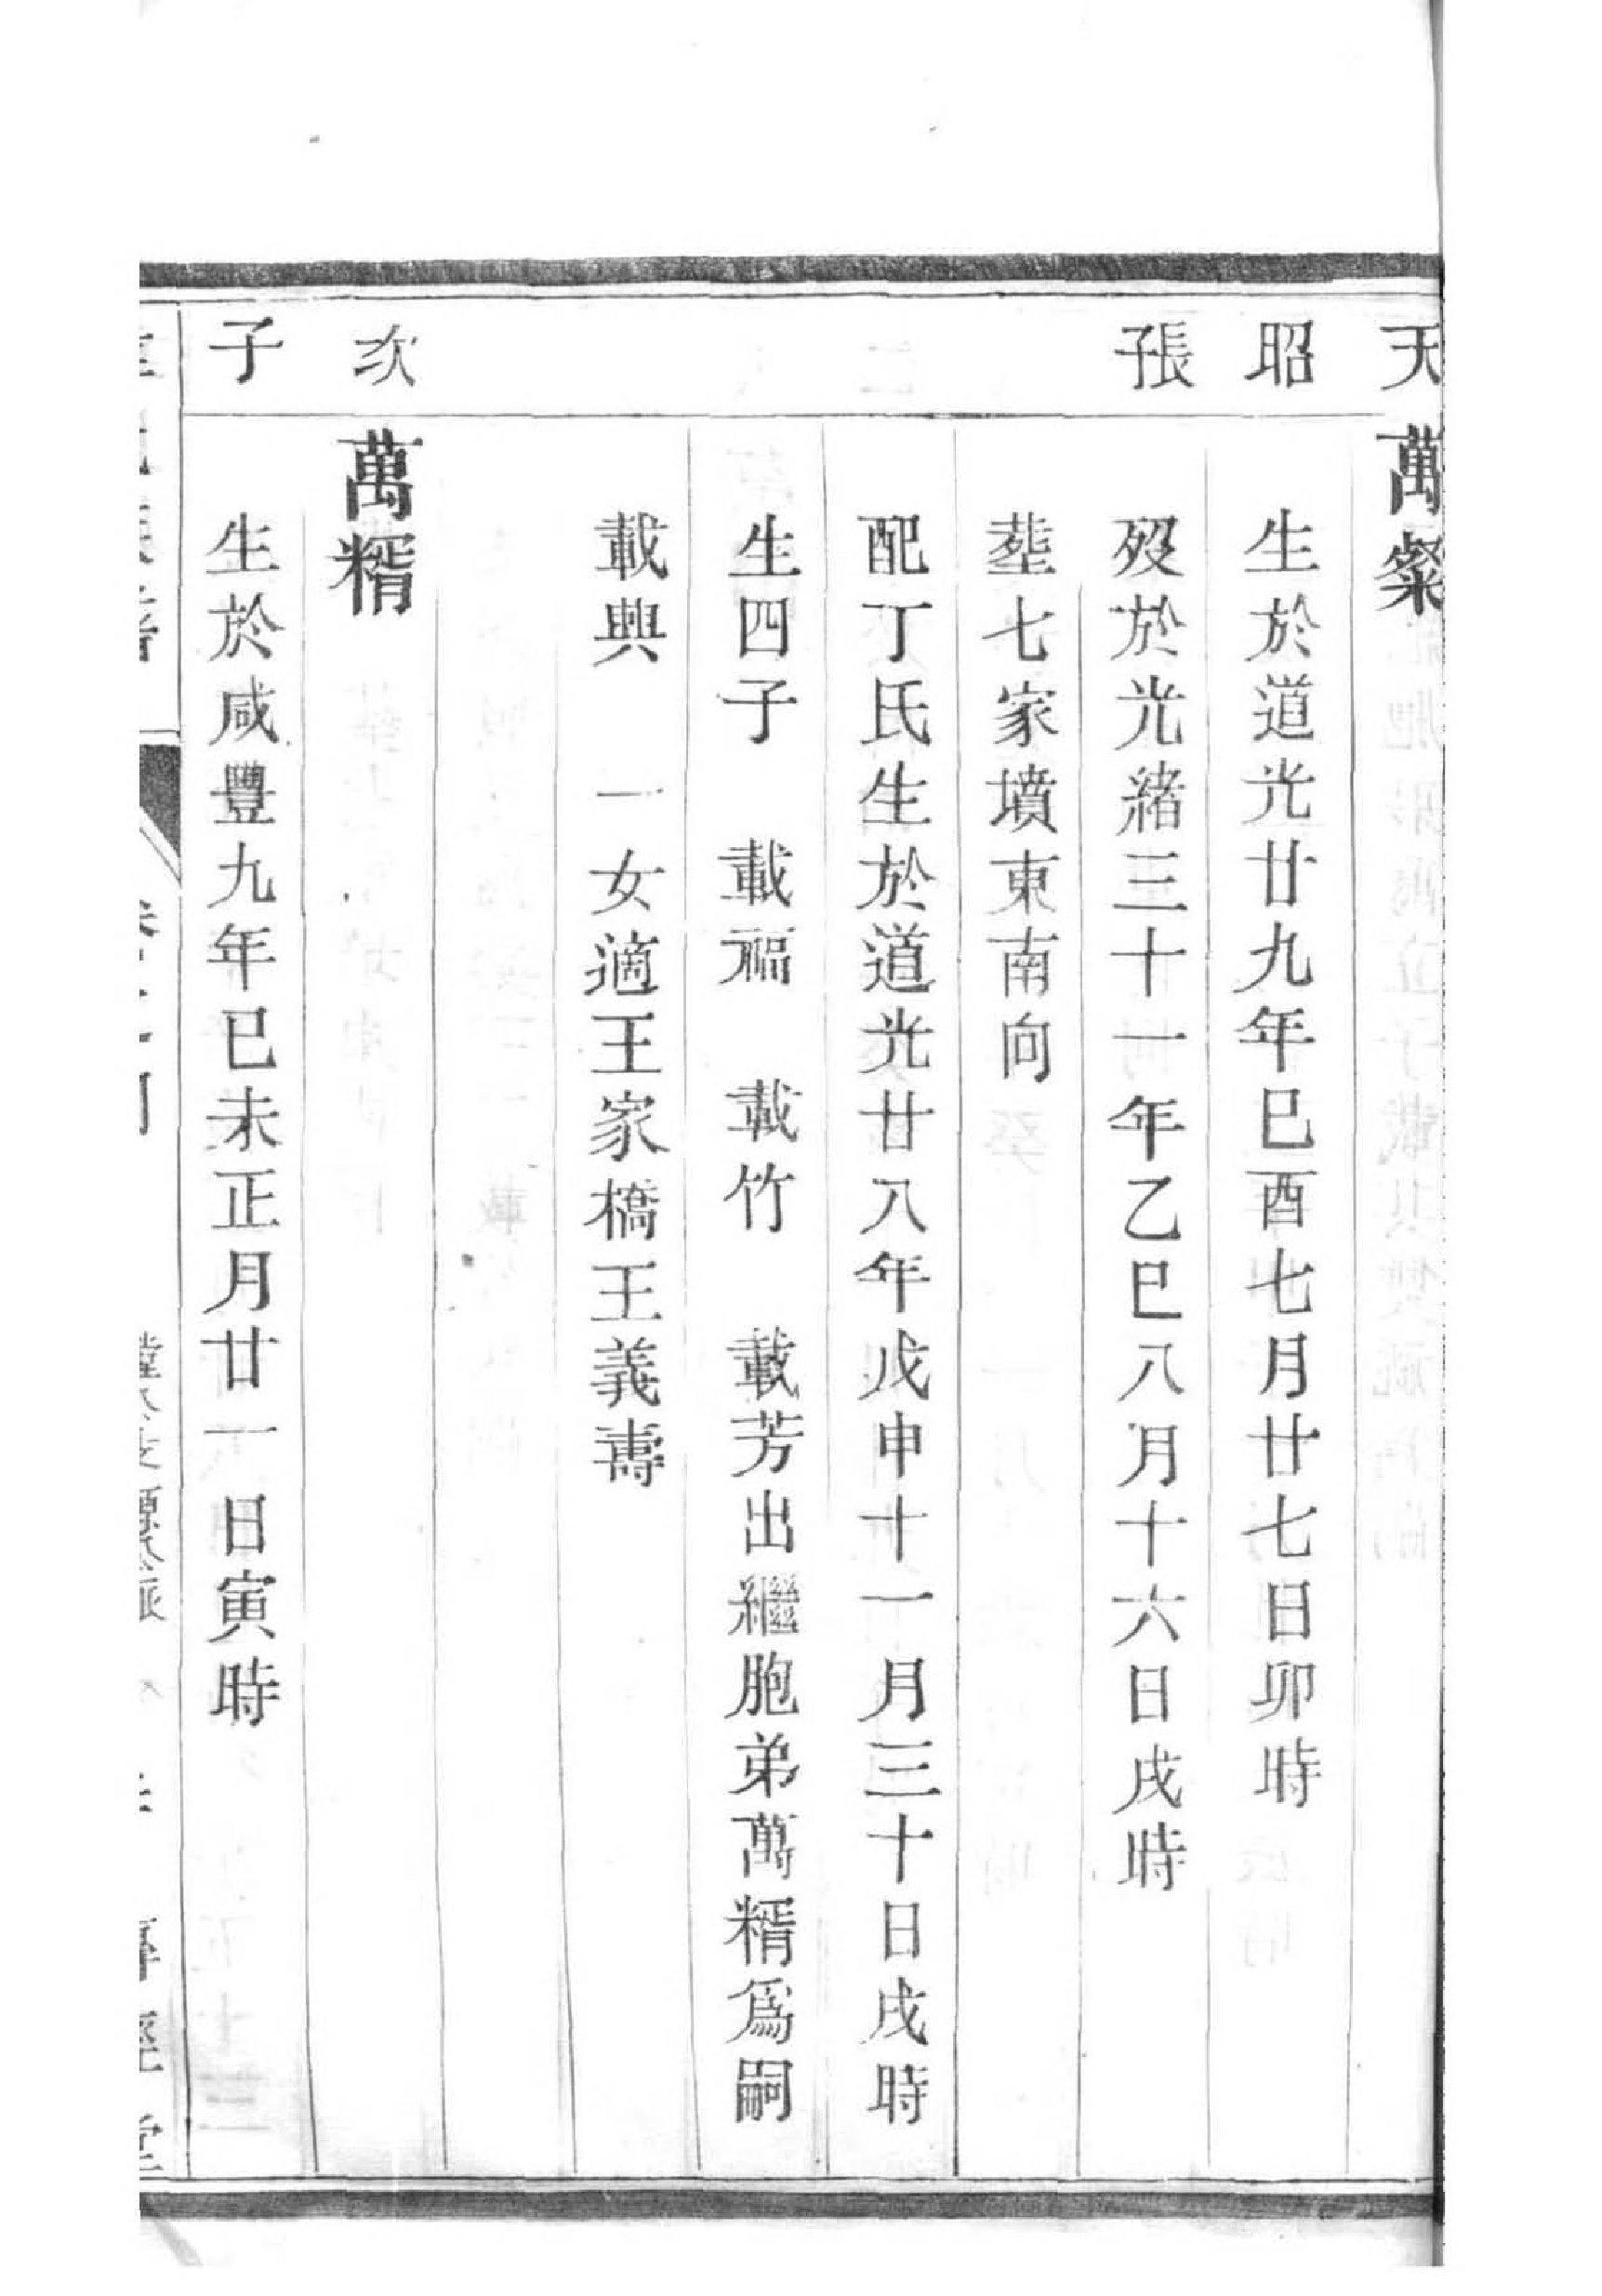 天昭張
次子
萬粲
生於道光廿九年巳酉七月廿七日卯時
歿於光緒三十一年乙巳八月十六日戌時
塟七家墳東南向
配丁氏生於道光廿八年戊申十一月三十日戌時
生四子 載福 載竹 載芳出繼胞弟萬糈爲嗣
載興 一女適王家橋王義壽
萬糈
生於咸豐九年巳未正月廿一日寅時